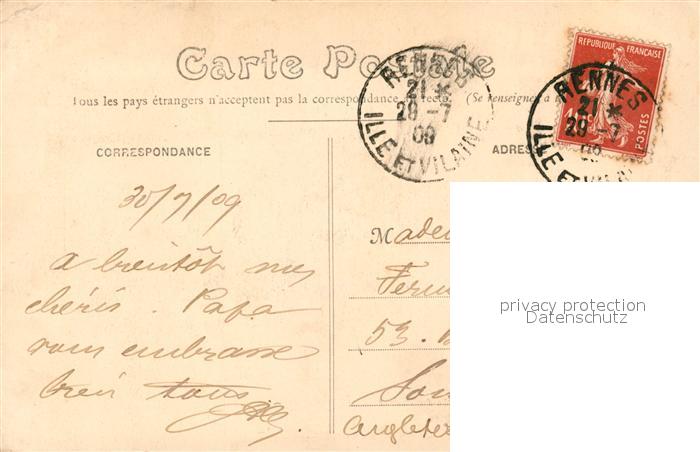 Carte Postale
Tous les pays étrangers n'acceptent pas la correspondance au recto. (Se renseigner à la
RENNES
21 *
29-7
09
ILLE ET VILAINE
REPUBLIQUE FRANÇAISE
POSTES
RENNES
21 *
29-7
09
ILLE ET VILAINE
CORRESPONDANCE
ADRES
30/7/09
a bientôt mes
chéris. Papa
vous embrasse
bien tous
Made
53.
Lon
Angleter
privacy protection
Datenschutz